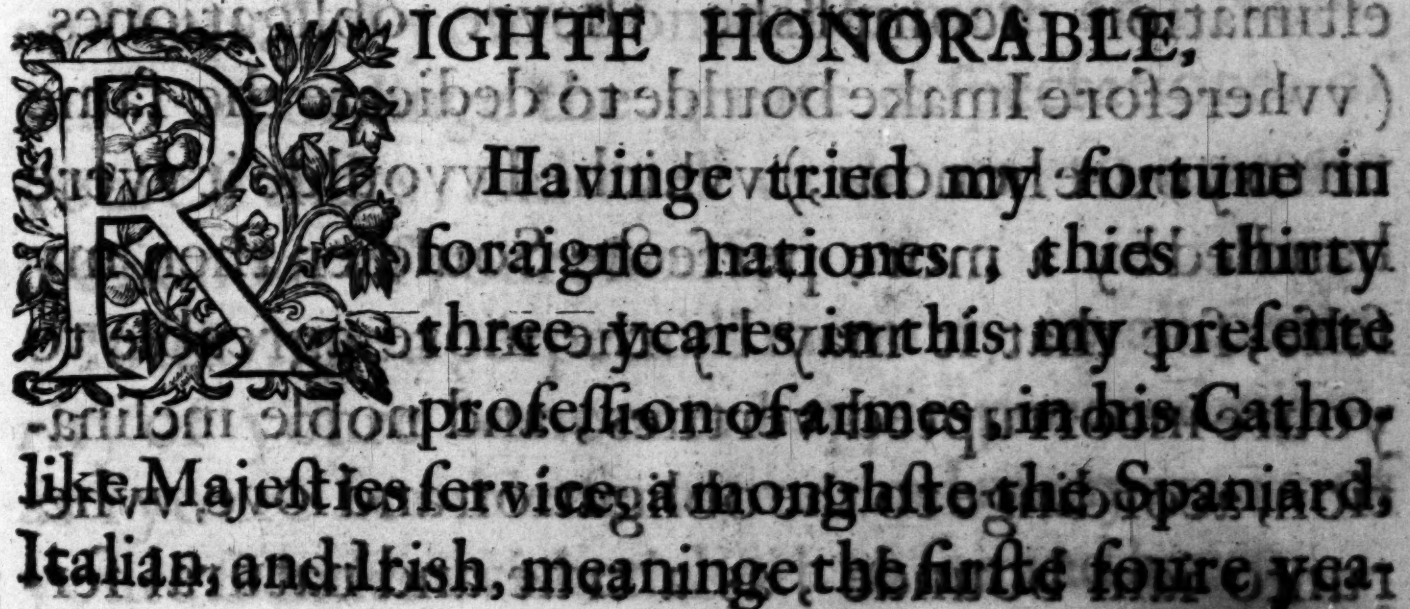 RIGHTE HONORABLE,
Havinge tried my fortune in
foraigne nationes, thies thirty
three yeares in this my preſente
profeſſion of armes, in his Catho-
like Majeſties ſervice, a monghſte the Spaniard,
Italian, and Irish, meaninge the firſte foure yea-